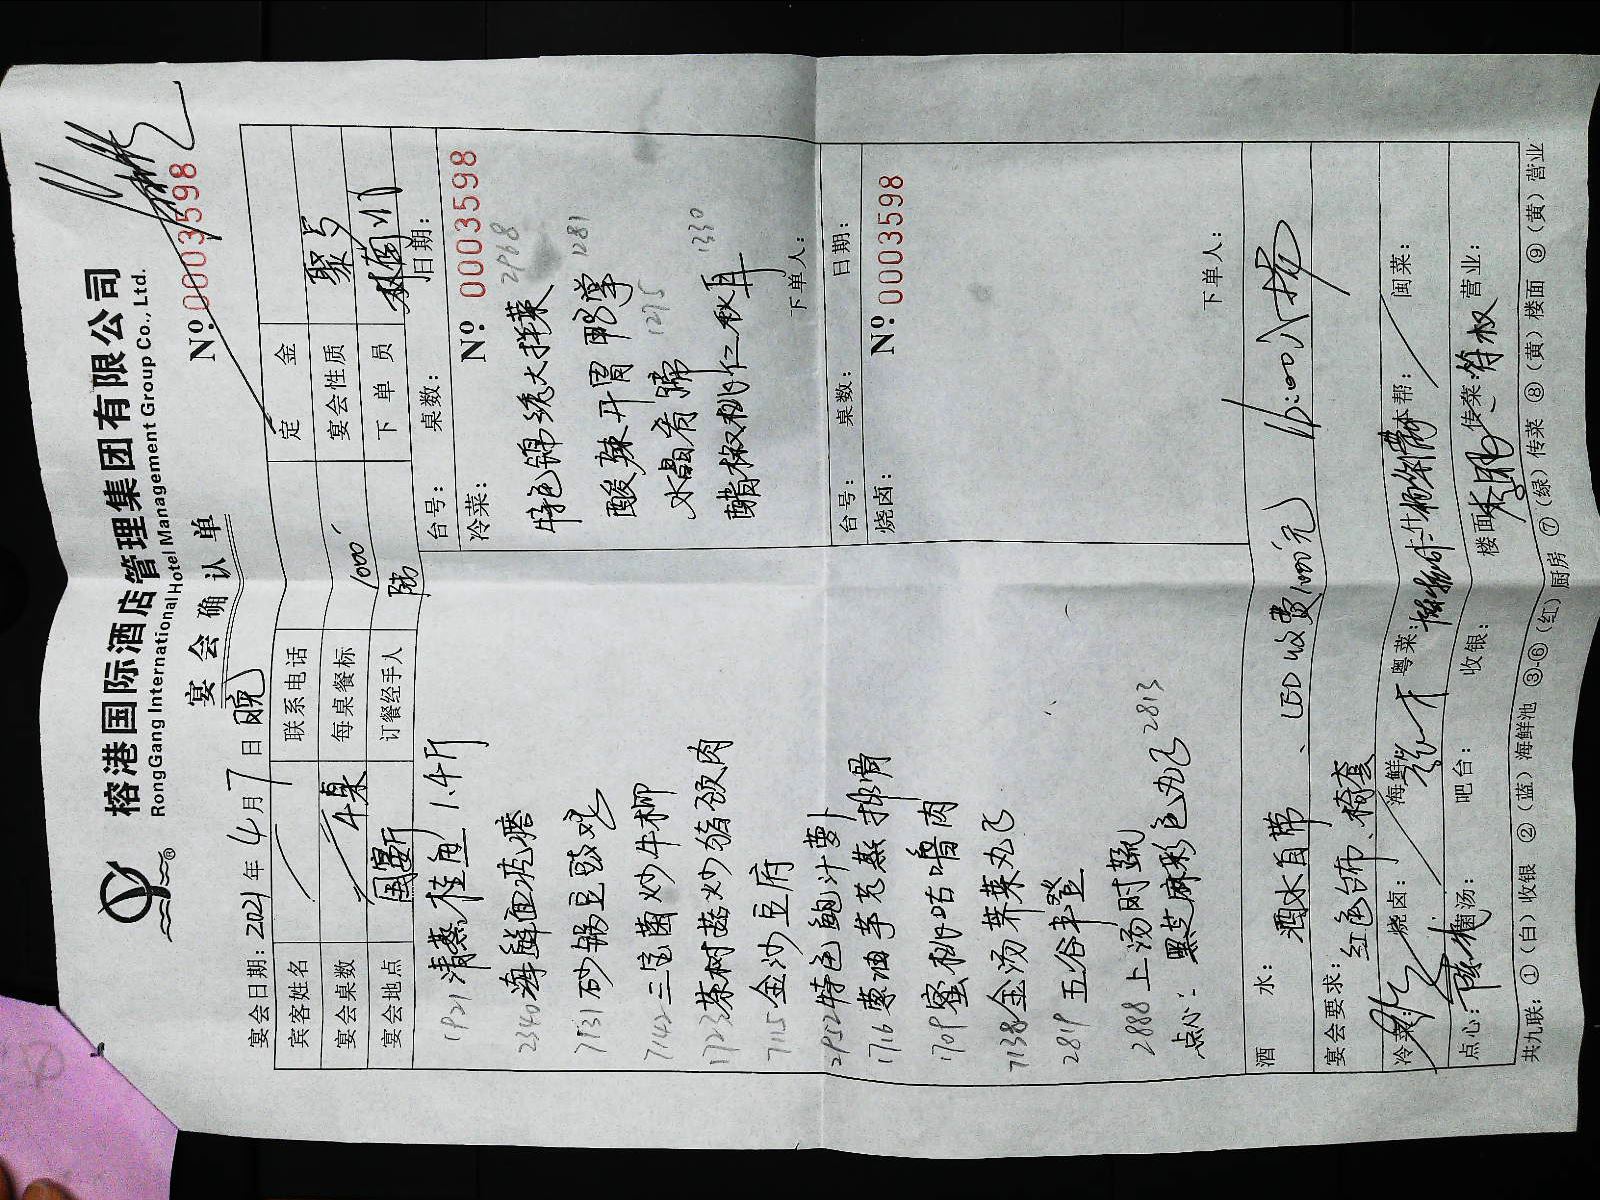 榕港国际酒店管理集团有限公司
RongGang International Hotel Management Group Co., Ltd.
宴会确认单
№ 0003598
宴会日期: 2021 年 4 月 7 日 晚
宾客姓名 联系电话 定金
宴会桌数 4桌 每桌餐标 1000 宴会性质 聚与
宴会地点 国宴厅 订餐经手人 下单员
1921 清蒸桂鱼 1.4斤
2340 海鲜面疙瘩
7131 砂锅豆豉
7142 三宝菌炒牛柳
1723 茶树菇炒猪颈肉
7115 金沙豆腐
2952 特色鲍汁萝卜
1716 葱油芋艿蒸排骨
1709 蜜桃咕噜肉
7138 金汤荠菜丸子
2819 五谷丰登
2888 上汤时蔬
点心: 黑芝麻彩色丸子 2813
台号: 桌数: 日期:
冷菜: № 0003598
特色锦绣大拌菜 2968
酸辣开胃鸭掌 1281
水晶肴蹄 1275
醋椒桃仁秋耳 1330
下单人:
台号: 桌数: 日期:
烧卤: № 00003598
下单人:
酒水: 酒水自带、LED收费1000元 16:00入场
宴会要求: 红色台布、椅套
冷菜: 烧卤: 海鲜: 粤菜: 本帮: 闽菜:
点心: 菌汤: 吧台: 收银: 楼面: 传菜: 营业:
共九联: ①(白)收银 ②(蓝)海鲜池 ③-⑥(红)厨房 ⑦(绿)传菜 ⑧(黄)楼面 ⑨(黄)营业